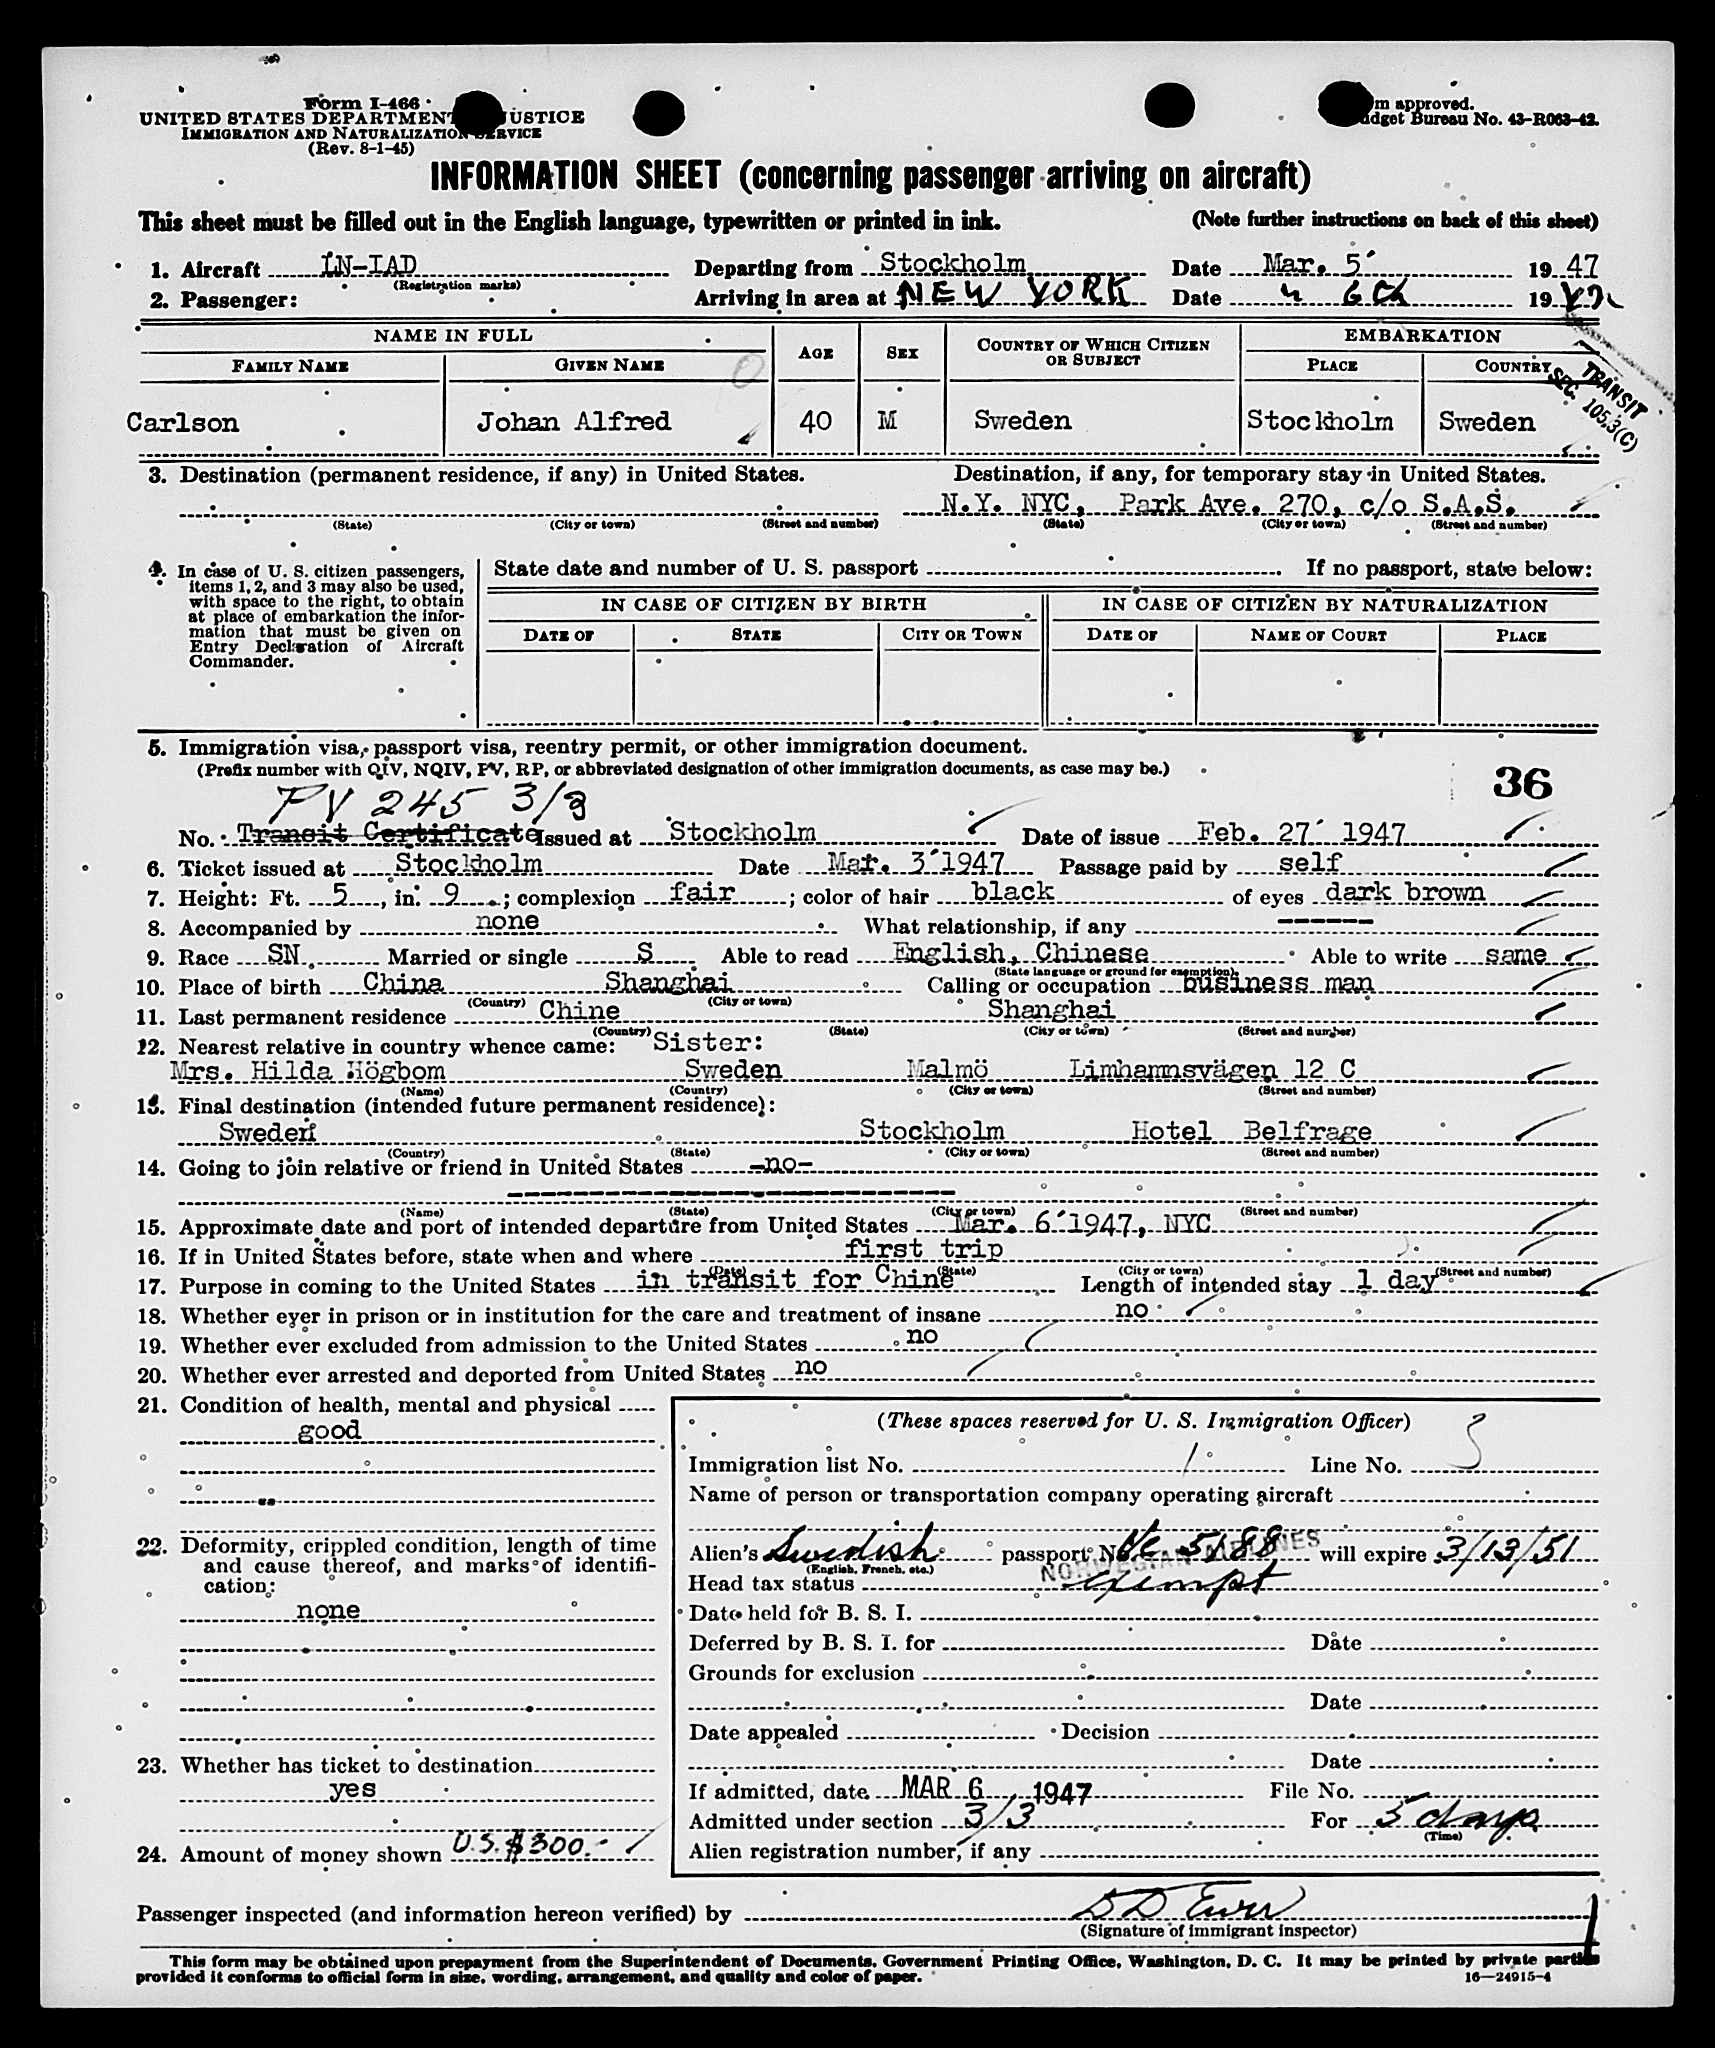 Form I-466
UNITED STATES DEPARTMENT JUSTICE
IMMIGRATION AND NATURALIZATION SERVICE
(Rev. 8-1-45)
m approved.
dget Bureau No. 43-R063-42.
INFORMATION SHEET (concerning passenger arriving on aircraft)
This sheet must be filled out in the English language, typewritten or printed in ink. (Note further instructions on back of this sheet)
1. Aircraft LN-IAD Departing from Stockholm Date Mar. 5' 1947
(Registration marks)
2. Passenger: Arriving in area at NEW YORK Date " 6th 19
NAME IN FULL AGE SEX COUNTRY OF WHICH CITIZEN OR SUBJECT EMBARKATION
FAMILY NAME GIVEN NAME PLACE COUNTRY
TRANSIT
SEC. 105.3(C)
Carlson Johan Alfred 40 M Sweden Stockholm Sweden
3. Destination (permanent residence, if any) in United States. Destination, if any, for temporary stay in United States.
N.Y. NYC, Park Ave. 270, c/o S.A.S.
(State) (City or town) (Street and number) (State) (City or town) (Street and number)
4. In case of U. S. citizen passengers, items 1, 2, and 3 may also be used, with space to the right, to obtain at place of embarkation the information that must be given on Entry Declaration of Aircraft Commander.
State date and number of U. S. passport If no passport, state below:
IN CASE OF CITIZEN BY BIRTH IN CASE OF CITIZEN BY NATURALIZATION
DATE OF STATE CITY OR TOWN DATE OF NAME OF COURT PLACE
5. Immigration visa, passport visa, reentry permit, or other immigration document.
(Prefix number with QIV, NQIV, PV, RP, or abbreviated designation of other immigration documents, as case may be.)
36
PV 245 3/3
No. Transit Certificate Issued at Stockholm Date of issue Feb. 27' 1947
6. Ticket issued at Stockholm Date Mar. 3'1947 Passage paid by self
7. Height: Ft. 5, in. 9; complexion fair; color of hair black of eyes dark brown
8. Accompanied by none What relationship, if any ------
9. Race SN. Married or single S Able to read English, Chinese Able to write same
(State language or ground for exemption)
10. Place of birth China Shanghai Calling or occupation business man
(Country) (City or town)
11. Last permanent residence Chine Shanghai
(Country) (State) (City or town) (Street and number)
12. Nearest relative in country whence came: Sister:
Mrs. Hilda Högbom Sweden Malmö Limhamnsvägen 12 C
(Name) (Country) (City or town) (Street and number)
13. Final destination (intended future permanent residence):
Sweden Stockholm Hotel Belfrage
(Country) (State) (City or town) (Street and number)
14. Going to join relative or friend in United States -no-
(Name) (State) (City or town) (Street and number)
15. Approximate date and port of intended departure from United States Mar. 6'1947, NYC
16. If in United States before, state when and where first trip
(Date) (State) (City or town) (Street and number)
17. Purpose in coming to the United States in transit for Chine Length of intended stay 1 day
18. Whether ever in prison or in institution for the care and treatment of insane no
19. Whether ever excluded from admission to the United States no
20. Whether ever arrested and deported from United States no
21. Condition of health, mental and physical
good
22. Deformity, crippled condition, length of time and cause thereof, and marks of identification:
none
23. Whether has ticket to destination
yes
24. Amount of money shown U.S. $300.-
(These spaces reserved for U. S. Immigration Officer)
Immigration list No. 1 Line No. 3
Name of person or transportation company operating aircraft
NORWEGIAN AIRLINES
Alien's Swedish passport No. 5188 will expire 3/13/51
(English, French, etc.)
Head tax status exempt
Date held for B. S. I.
Deferred by B. S. I. for Date
Grounds for exclusion
Date
Date appealed Decision
Date
If admitted, date MAR 6 1947 File No.
Admitted under section 3/3 For 5 days
(Time)
Alien registration number, if any
Passenger inspected (and information hereon verified) by
(Signature of immigrant inspector)
This form may be obtained upon prepayment from the Superintendent of Documents, Government Printing Office, Washington, D. C. It may be printed by private parties
provided it conforms to official form in size, wording, arrangement, and quality and color of paper.
16—24915-4